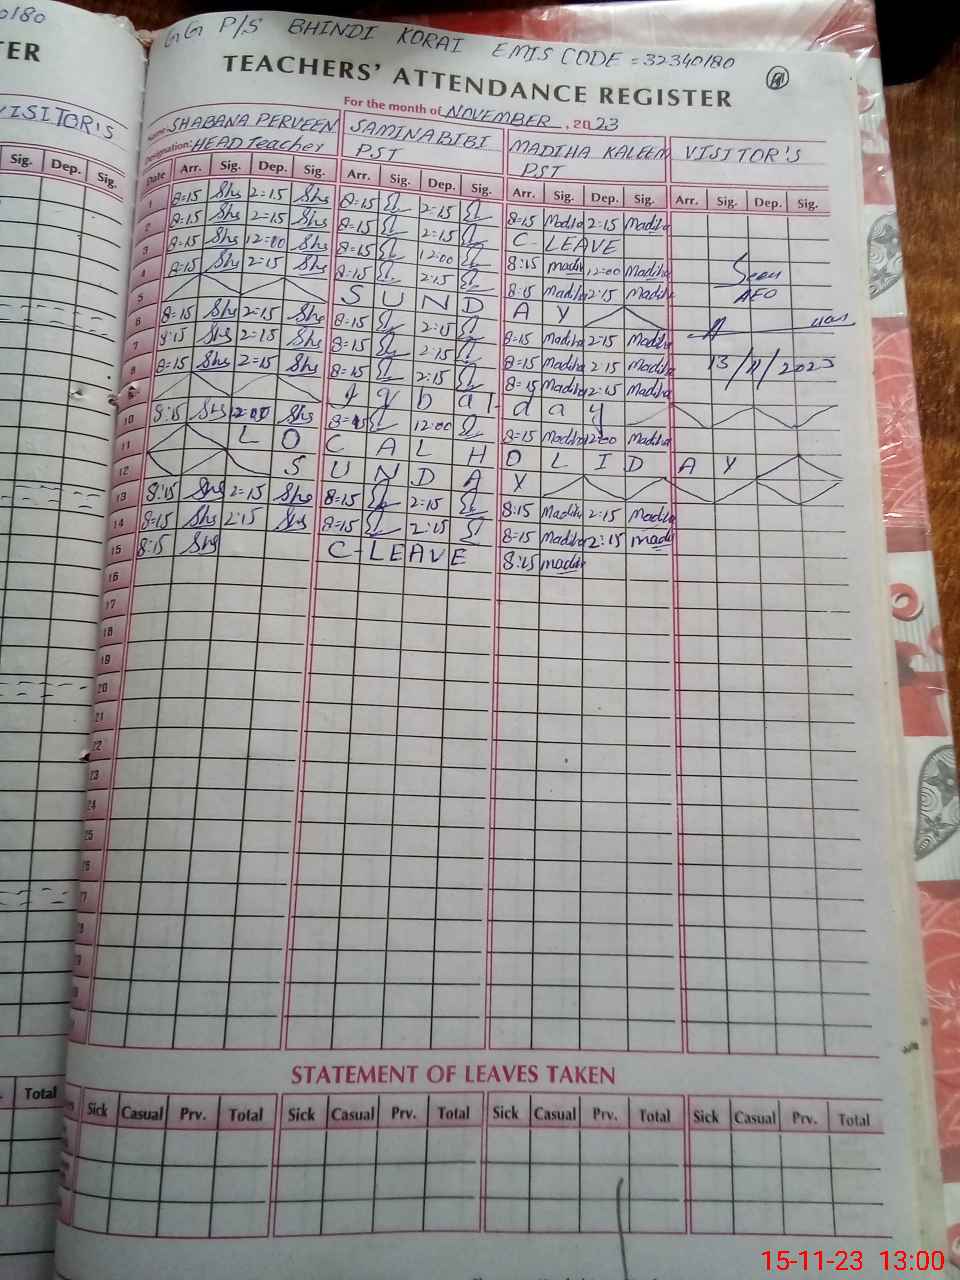 0180
GG P/S BHINDI KORAI EMIS CODE = 32340180
TER
TEACHERS' ATTENDANCE REGISTER
For the month of NOVEMBER, 2023
VISITOR'S
Name SHABANA PERVEEN SAMINA BIBI MADIHA KALEEM VISITOR'S
Designation: HEAD Teacher PST PST
Sig. Dep. Sig.
Date Arr. Sig. Dep. Sig. Arr. Sig. Dep. Sig. Arr. Sig. Dep. Sig. Arr. Sig. Dep. Sig.
1 8=15 Shs 2=15 Shs 8=15 2:15 8=15 Madiha 2:15 Madiha
2 8=15 Shs 2=15 Shs 8=15 2:15 C-LEAVE
3 8=15 Shs 12:00 Shs 8=15 12:00 8:15 madiha 12:00 Madiha Seen
4 8=15 Shs 2:15 Shs 8=15 2:15 8:15 Madiha 2:15 Madiha AEO
5 SUNDAY
6 8=15 Shs 2=15 Shs 8=15 2:15 8=15 Madiha 2:15 Madiha
7 8:15 Shs 2=15 Shs 8=15 2:15 8=15 Madiha 2:15 Madiha 13/11/2023
8 8=15 Shs 2=15 Shs 8=15 2:15 8=15 Madiha 2:15 Madiha
9 Iqbal day
10 8:15 Shs 12:00 Shs 8=15 12:00 8=15 Madiha 12:00 Madiha
11 LOCAL HOLIDAY
12 SUNDAY
13 8:15 Shs 2=15 Shs 8=15 2:15 8:15 Madiha 2:15 Madiha
14 8=15 Shs 2:15 Shs 8=15 2:15 8=15 Madiha 2:15 madiha
15 8:15 Shs C-LEAVE 8:15 madiha
16
17
18
19
20
21
22
23
24
25
STATEMENT OF LEAVES TAKEN
Total
Sick Casual Prv. Total Sick Casual Prv. Total Sick Casual Prv. Total Sick Casual Prv. Total
15-11-23 13:00